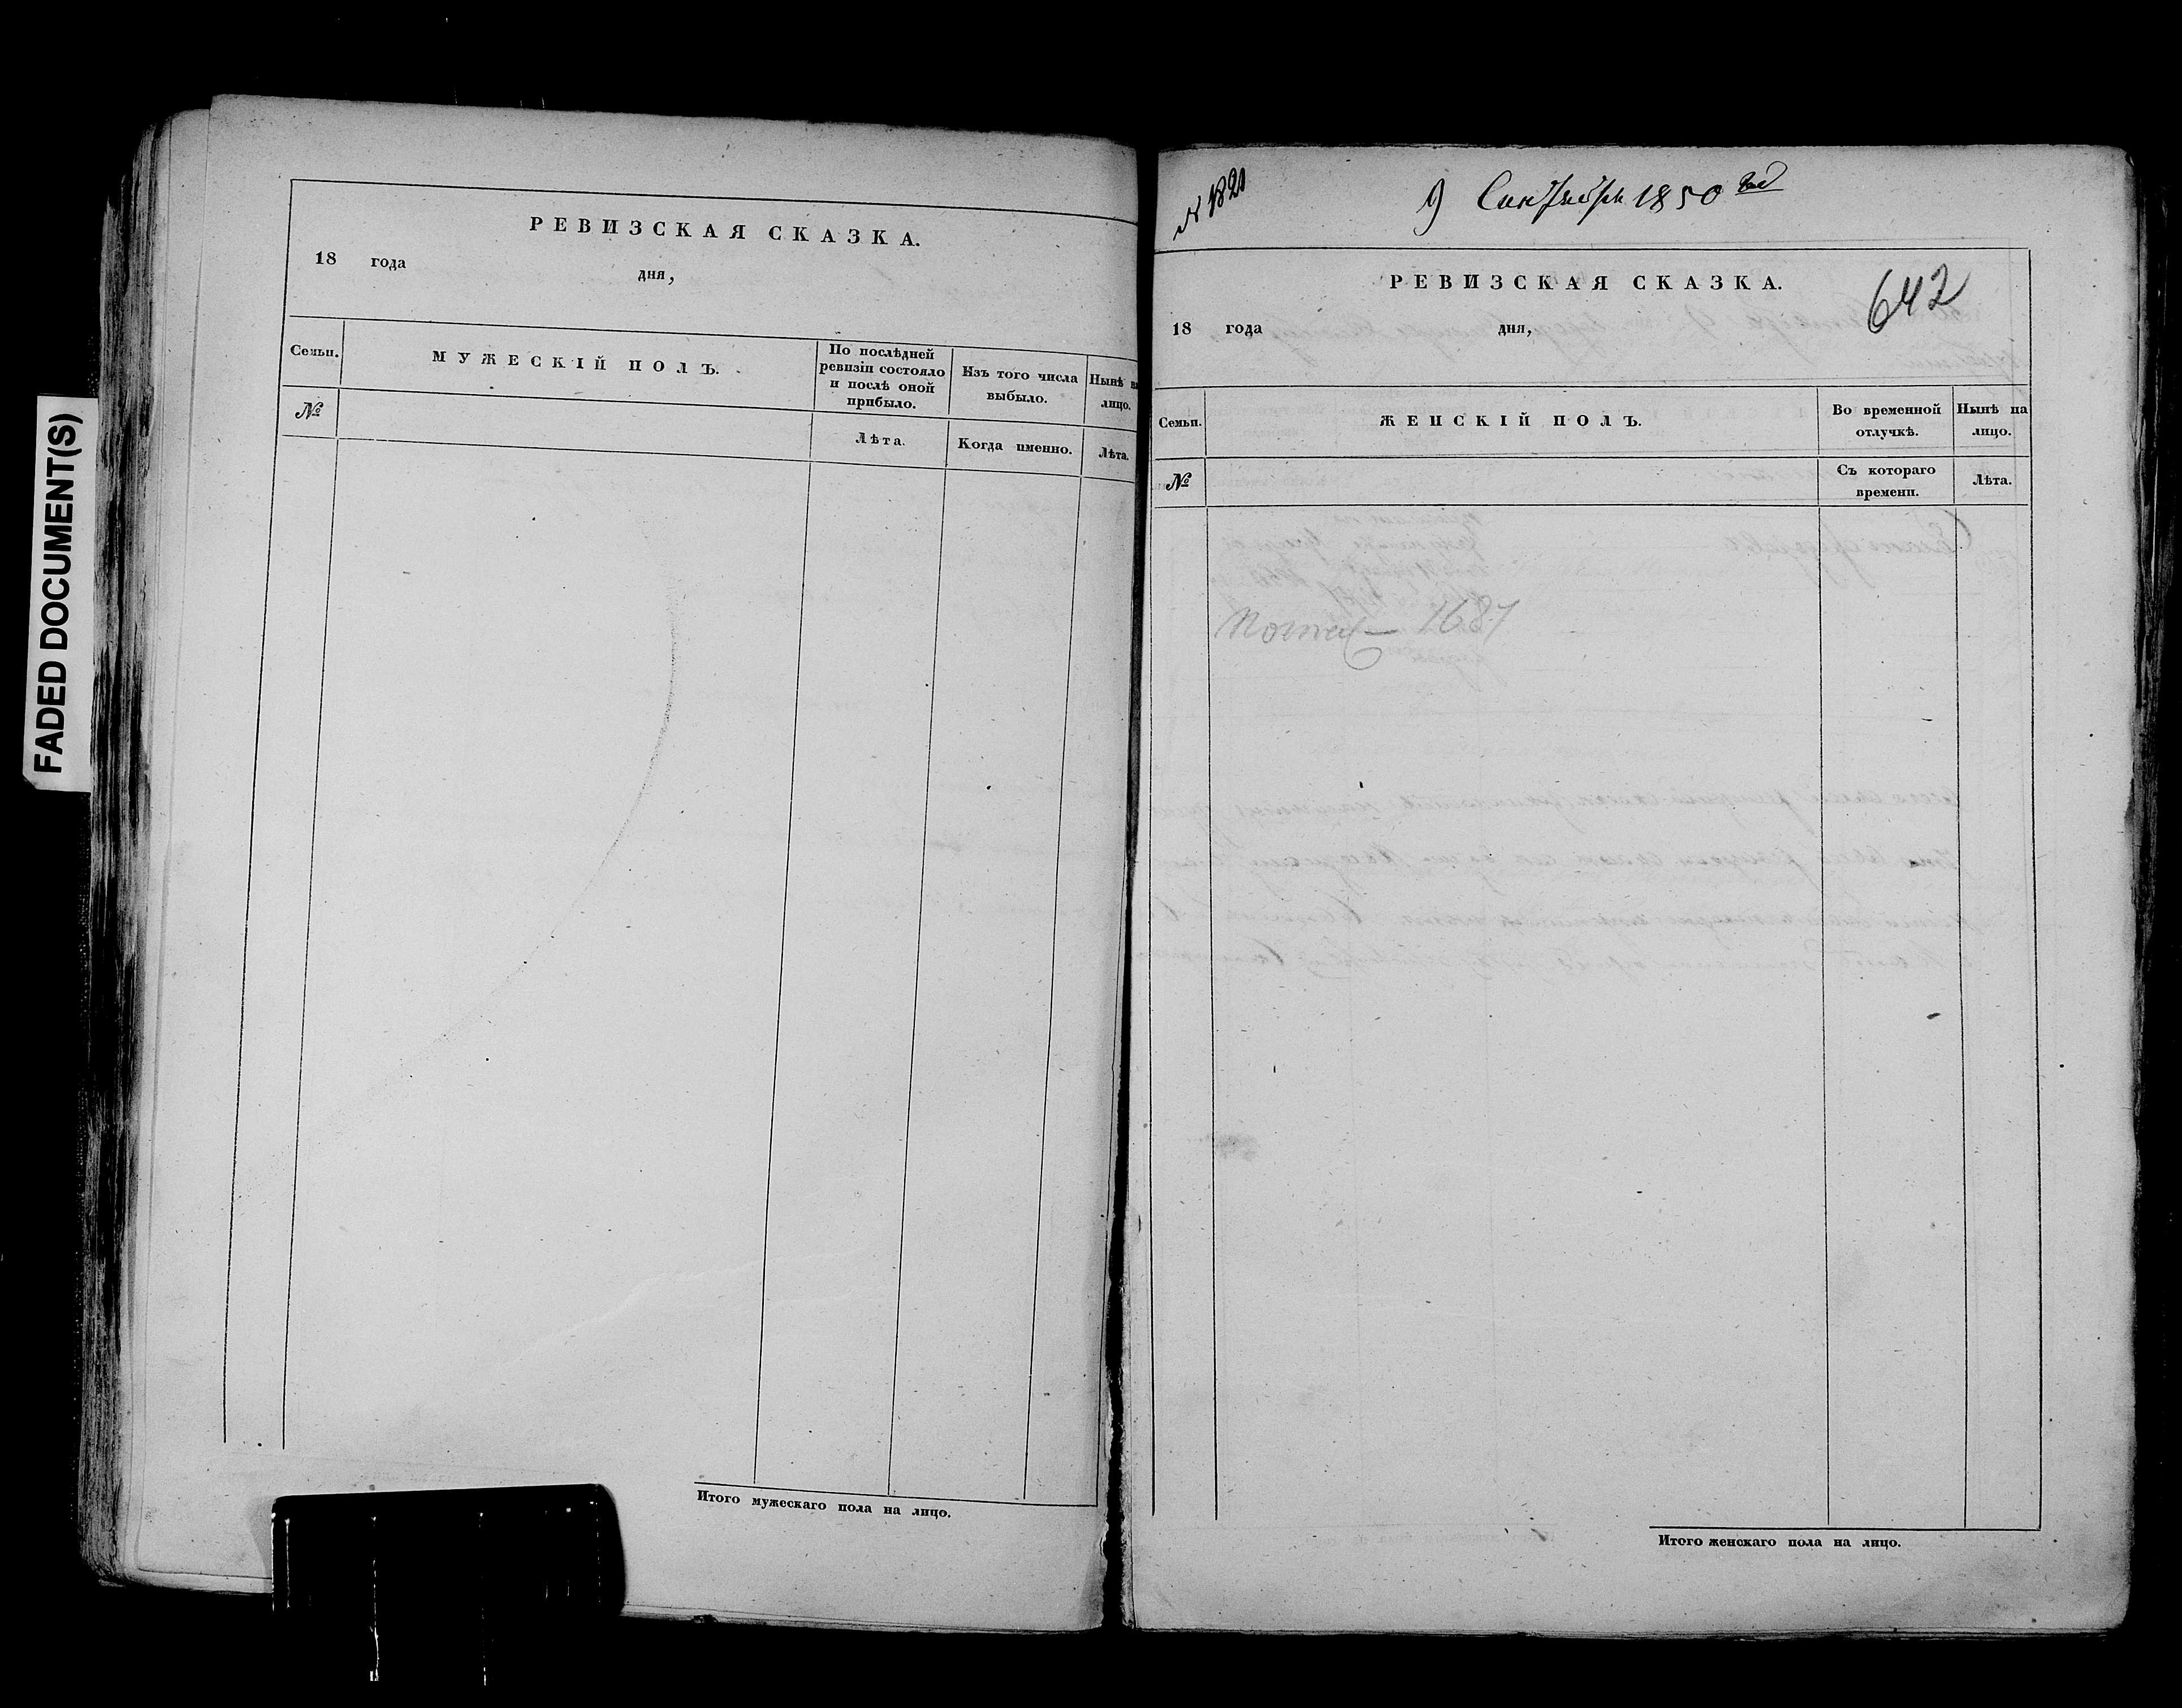 FADED DOCUMENT(S)
РЕВИЗСКАЯ СКАЗКА.
18 года дня,
Семьи. МУЖЕСКІЙ ПОЛЪ. По послѣдней ревизіи состояло и послѣ оной прибыло. Изъ того числа выбыло. Нынѣ на лицо.
№ Лѣта. Когда именно. Лѣта.
Итого мужескаго пола на лицо.
№ 1820
9 Сентября 1850 год
642
РЕВИЗСКАЯ СКАЗКА.
18 года дня,
Семьи. ЖЕНСКІЙ ПОЛЪ. Во временной отлучкѣ. Нынѣ на лицо.
№ Съ котораго времени. Лѣта.
1687
Итого женскаго пола на лицо.